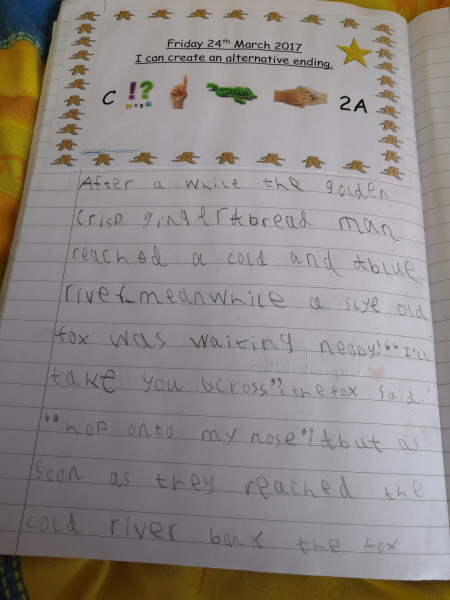 Friday 24th March 2017
I can create an alternative ending.
C !? 2A
After a while the golden
Crisp gingertbread man
reached a cold and tblue
river meanwhile a slye old
fox was waiting neapy! "I'll
take you across": the fox said.
"hop onto my nose"! tbut as
soon as they reached the
cold river bank the fox